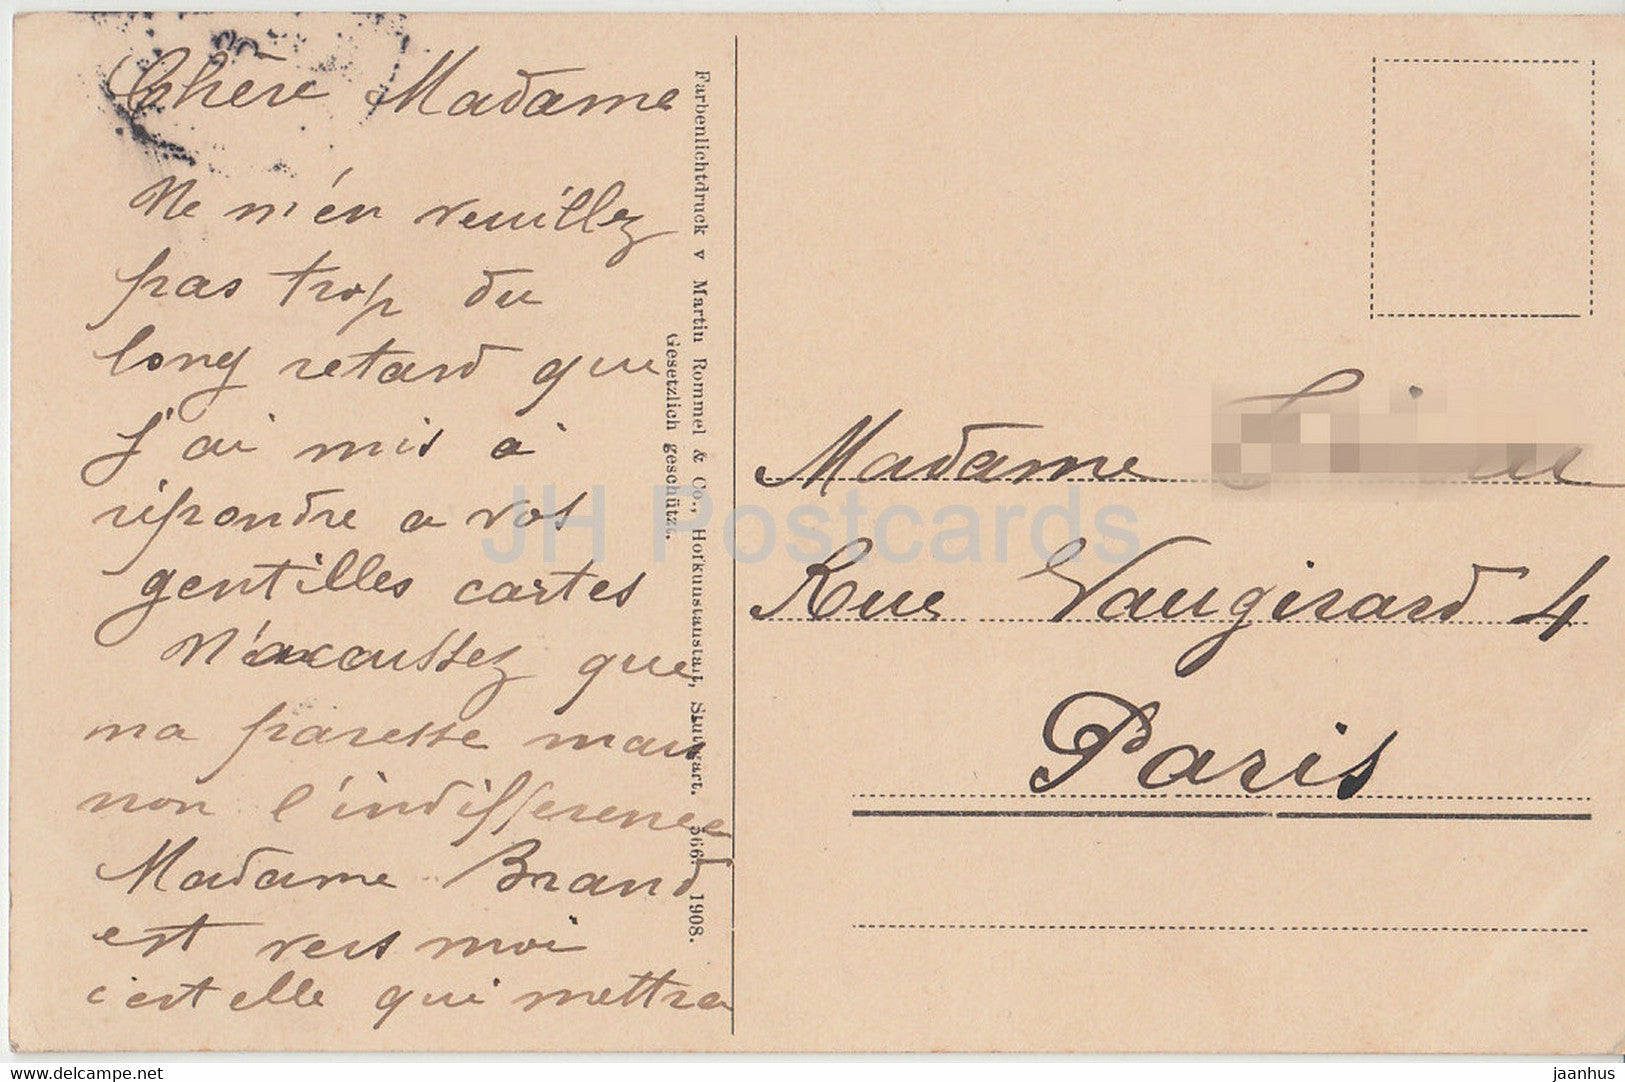 Chère Madame
Ne m'en veuillez
pas trop du
long retard que
j'ai mis a
répondre a vos
gentilles cartes
N'accusez que
ma paresse mais
non l'indifference
Madame Brand
est vers moi
c'est elle qui mettra
Farbenlichtdruck v Martin Rommel & Co., Hofkunstanstalt, Stuttgart. 366. 1908.
Gesetzlich geschützt.
Madame
Rue Vaugirard 4
Paris
JH Postcards
hippostcard.com
jaanhus